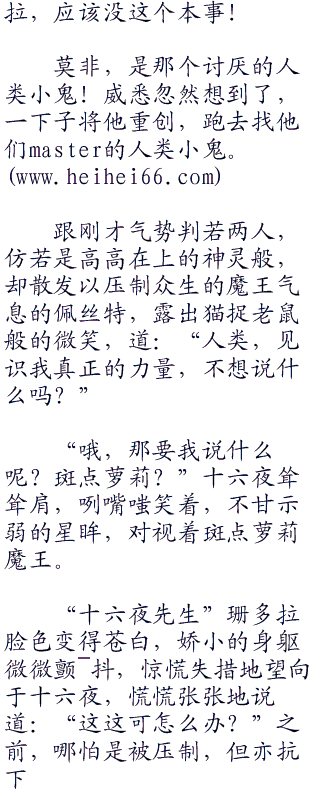 拉，应该没这个本事！
莫非，是那个讨厌的人
类小鬼！威悉忽然想到了，
一下子将他重创，跑去找他
们master的人类小鬼。
(www.heihei66.com)
跟刚才气势判若两人，
仿若是高高在上的神灵般，
却散发以压制众生的魔王气
息的佩丝特，露出猫捉老鼠
般的微笑，道：“人类，见
识我真正的力量，不想说什
么吗？”
“哦，那要我说什么
呢？斑点萝莉？”十六夜耸
耸肩，咧嘴嗤笑着，不甘示
弱的星眸，对视着斑点萝莉
魔王。
“十六夜先生”珊多拉
脸色变得苍白，娇小的身躯
微微颤¯抖，惊慌失措地望向
于十六夜，慌慌张张地说
道：“这这可怎么办？”之
前，哪怕是被压制，但亦抗
下